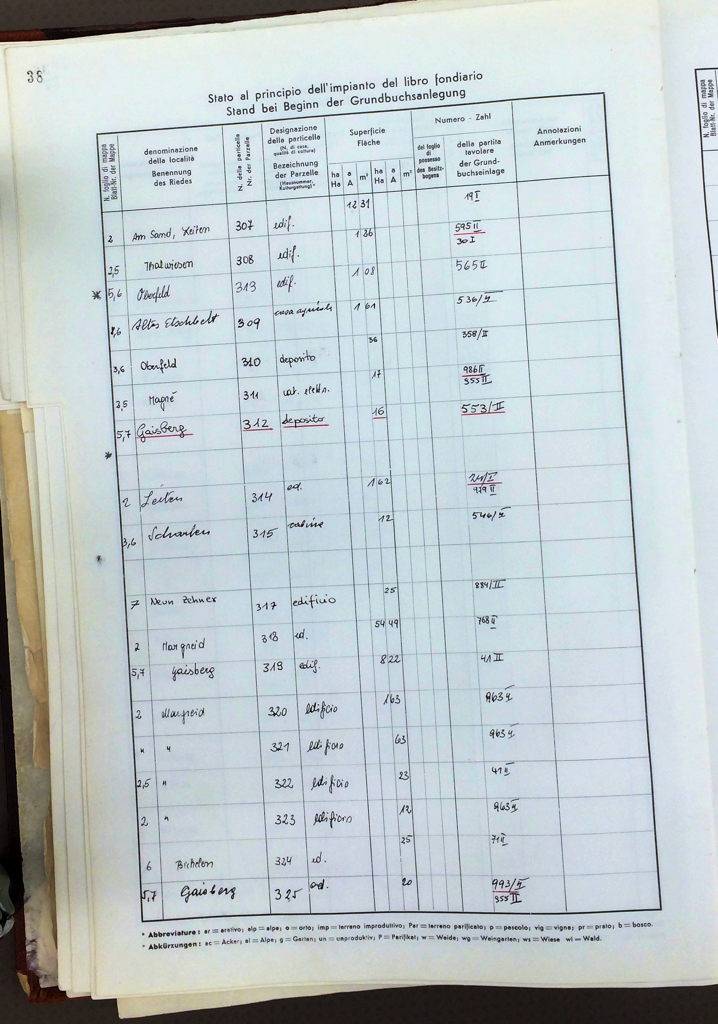 38
Stato al principio dell'impianto del libro fondiario
Stand bei Beginn der Grundbuchsanlegung
N. foglio di mappa
Blatt-Nr. der Mappe
denominazione
della località
Benennung
des Riedes
N. della particella
Nr. der Parzelle
Designazione
della particella
(N. di casa,
qualità di cultura)
Bezeichnung
der Parzelle
(Hausnummer,
Kulturgattung)*
Superficie
Fläche
ha a m² ha a m²
Ha A Ha A
Numero - Zahl
del foglio
di
possesso
des Besitz-
bogens
della partita
tavolare
der Grund-
buchseinlage
Annotazioni
Anmerkungen
2 Am Sand, Leiten 307 edif. 12 31 19 I
2,5 Thalwiesen 308 edif. 1 36 595 II
30 I
* 5,6 Oberfeld 313 edif. 1 08 565 II
309 casa agricola 1 61 536/II
3,6 Oberfeld 310 deposito 36 358/II
3,5 Magré 311 17 986 II
355 II
5,7 Gaisberg 312 deposito 16 553/II
*
2 Leiten 314 ed. 1 62 I
II
3,6 315 cabine 12 546/II
7 Neun Zehner 317 edificio 25 884/II
2 Margreid 318 ed. 54 49 768 II
5,7 Gaisberg 319 edif. 8 22 41 II
2 Margreid 320 edificio 1 63 963 II
" " 321 edificio 63 963 II
2,5 " 322 edificio 23 41 II
2 " 323 edificio 12 963 II
6 324 ed. 25 71 II
5,7 Gaisberg 325 ed. 20 993/II
355 II
* Abbreviature: ar = arativo; alp = alpe; o = orto; imp = terreno improduttivo; Par = terreno parificato; p = pascolo; vig = vigna; pr = prato; b = bosco.
* Abkürzungen: ac = Acker; al = Alpe; g = Garten; un = unproduktiv; P = Parifikat; w = Weide; wg = Weingarten; ws = Wiese wl = Wald.
N. foglio di mappa
Blatt-Nr. der Mappe